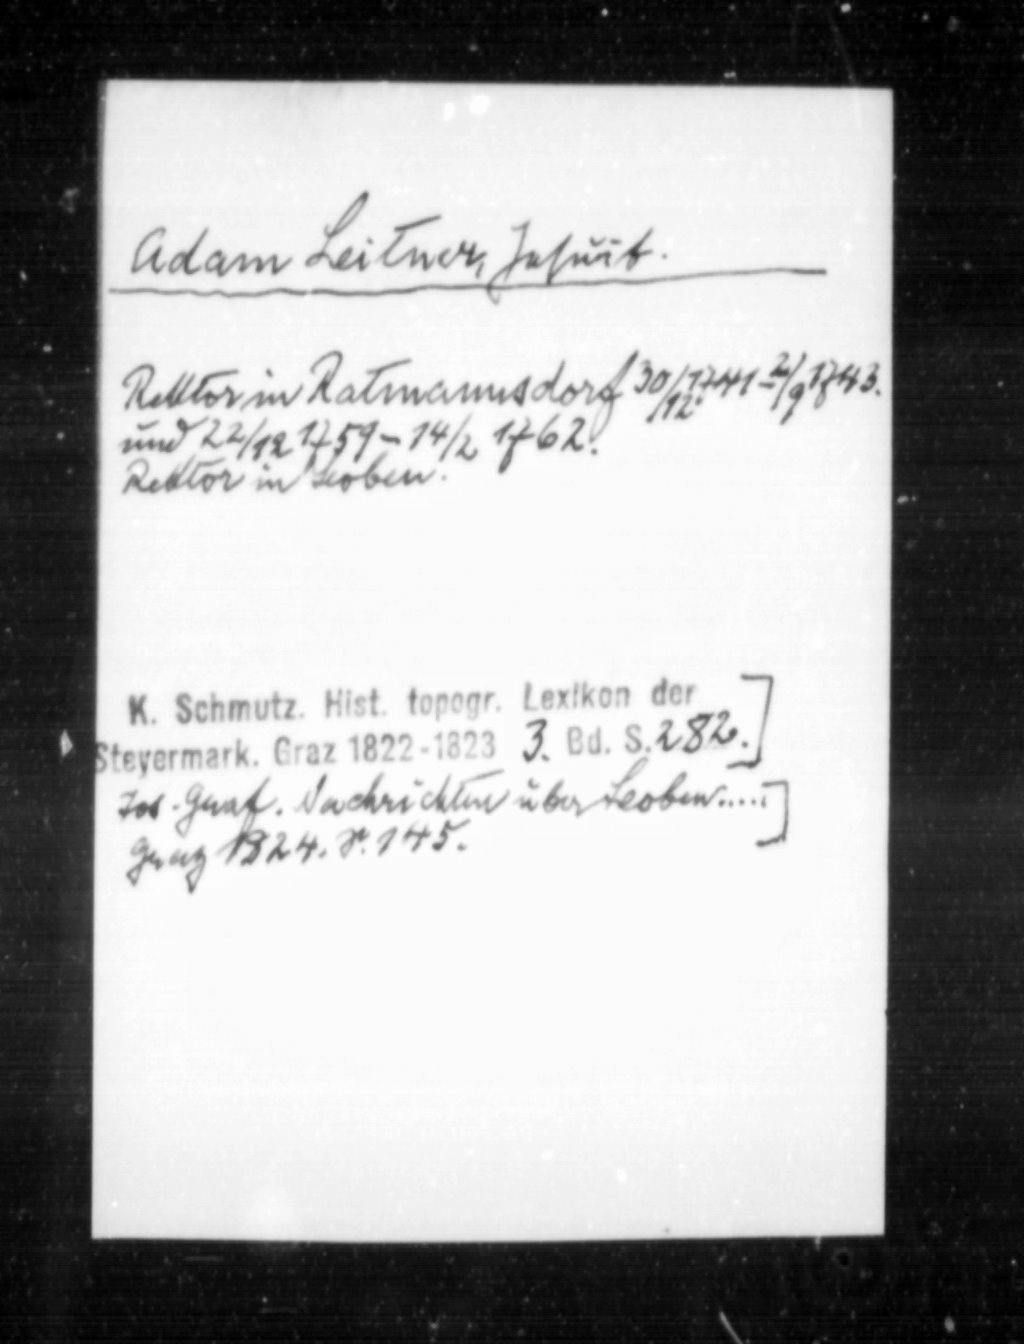 Adam Leitner, Jesuit.
Rektor in Ratmannsdorf 30/12. 1741 – 2/9 1743.
und 22/12 1759 – 14/2 1762.
Rektor in Leoben.
K. Schmutz. Hist. topogr. Lexikon der
Steyermark. Graz 1822-1823 3. Bd. S. 282.]
Jos. Graf. Nachrichten über Leoben.....]
Graz 1824. S. 145.